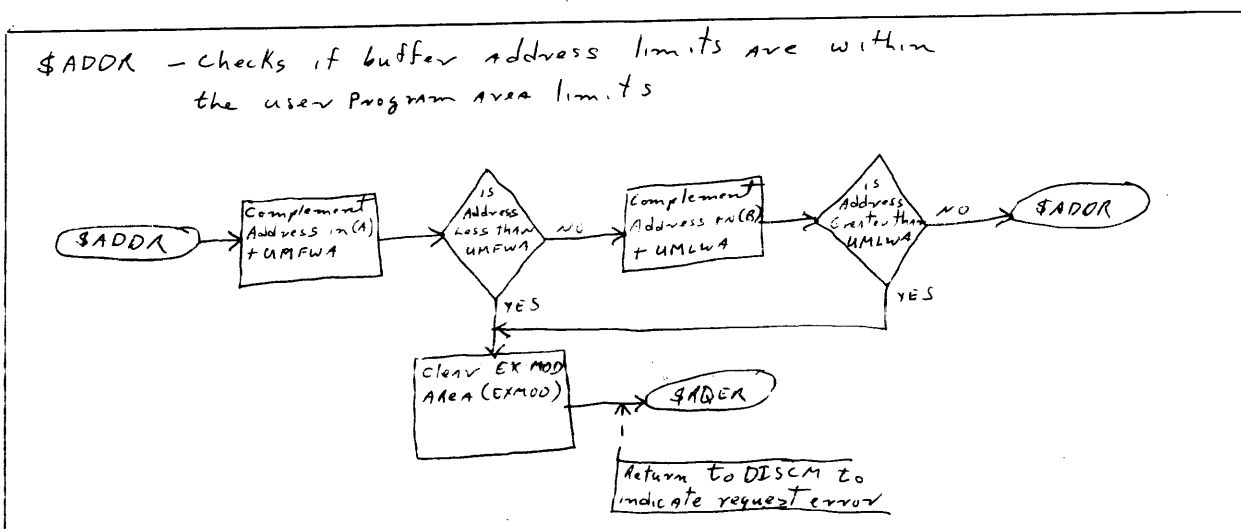 $ADDR - checks if buffer address limits are within
the user Program Area limits
$ADDR
Complement
Address in (A)
+ UMFWA
is
Address
Less than
UMFWA
NO
YES
Complement
Address in (B)
+ UMLWA
is
Address
Greater than
UMLWA
NO
YES
$ADDR
Clear EXMOD
Area (EXMOD)
$RQER
Return to DISCM to
indicate request error